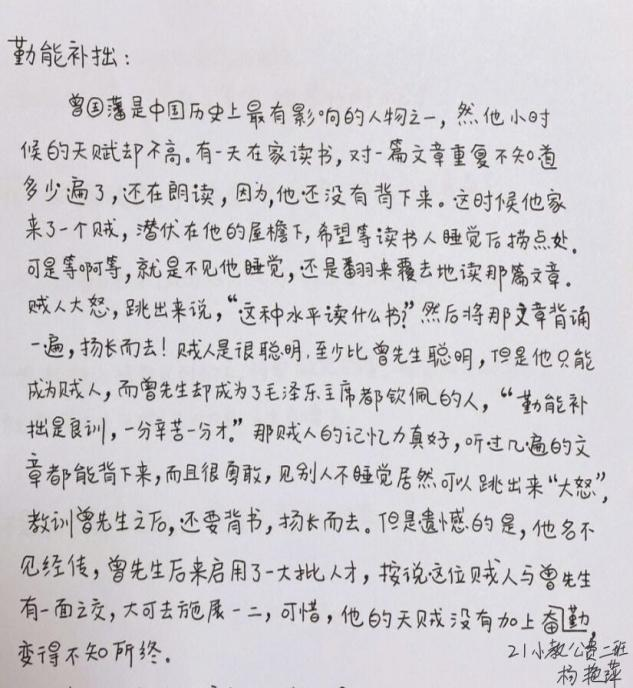 勤能补拙：
曾国藩是中国历史上最有影响的人物之一，然他小时
候的天赋却不高。有一天在家读书，对一篇文章重复不知道
多少遍了，还在朗读，因为，他还没有背下来。这时候他家
来了一个贼，潜伏在他的屋檐下，希望等读书人睡觉后捞点处。
可是等啊等，就是不见他睡觉，还是翻来覆去地读那篇文章。
贼人大怒，跳出来说，“这种水平读什么书？”然后将那文章背诵
一遍，扬长而去！贼人是很聪明，至少比曾先生聪明，但是他只能
成为贼人，而曾先生却成为了毛泽东主席都钦佩的人，“勤能补
拙是良训，一分辛苦一分才。”那贼人的记忆力真好，听过几遍的文
章都能背下来，而且很勇敢，见别人不睡觉居然可以跳出来“大怒”，
教训曾先生之后，还要背书，扬长而去。但是遗憾的是，他名不
见经传，曾先生后来启用了一大批人才，按说这位贼人与曾先生
有一面之交，大可去施展一二，可惜，他的天赋没有加上奋勤，
变得不知所终。
21小教公费二班
杨艳萍